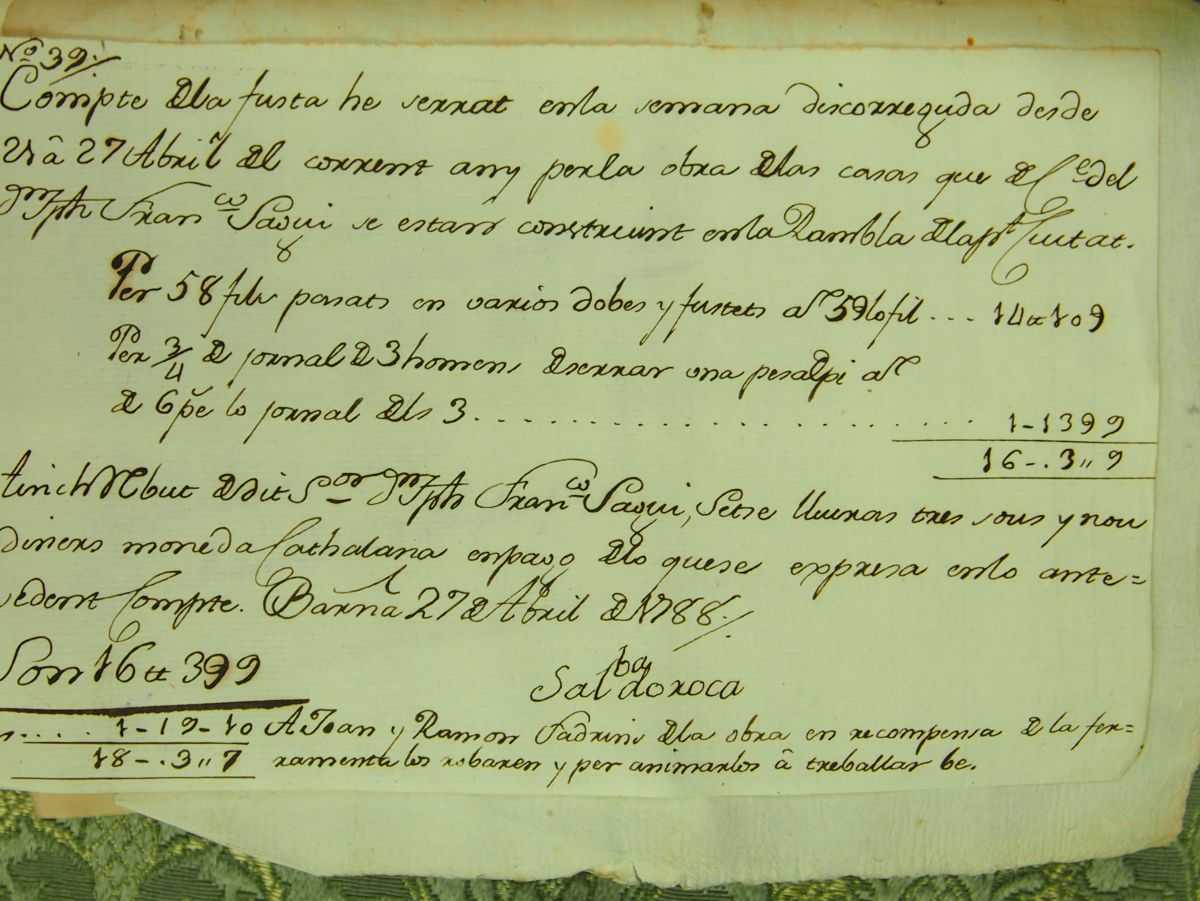 No 39.
Compte dla fusta he serrat enla semana discorreguda desde
21 â 27 Abril del corrent any perla obra dlas casas que d Ce del
Dn Jph Franco Sagui se estan construint enla Rambla dlapnt Ciutat.
Per 58 fils pasats en varios dobes y fustets a 59 lo fil ... 14 tt 10 9
Per 3/4 d jornal d 3 homens dserrar una pesa d pi a
d 6 pte lo jornal dls 3 ............ 1-13 9 9
16-.3 " 9
tinch Rebut d dit Sor Dn Jph Franco Sagui, Setse lliuras tres sous y nou
diners moneda Cathalana enpago dlo quese expresa enlo ante=
sedent Compte. Barna 27 d Abril d 1788.
Son 16 tt 3 9 9
Salbador oca
.... 1-19-10 A Joan y Ramon Fadrins dla obra en recompensa d la fer=
18-.3 " 7 ramenta los robaren y per animarlos â treballar be.